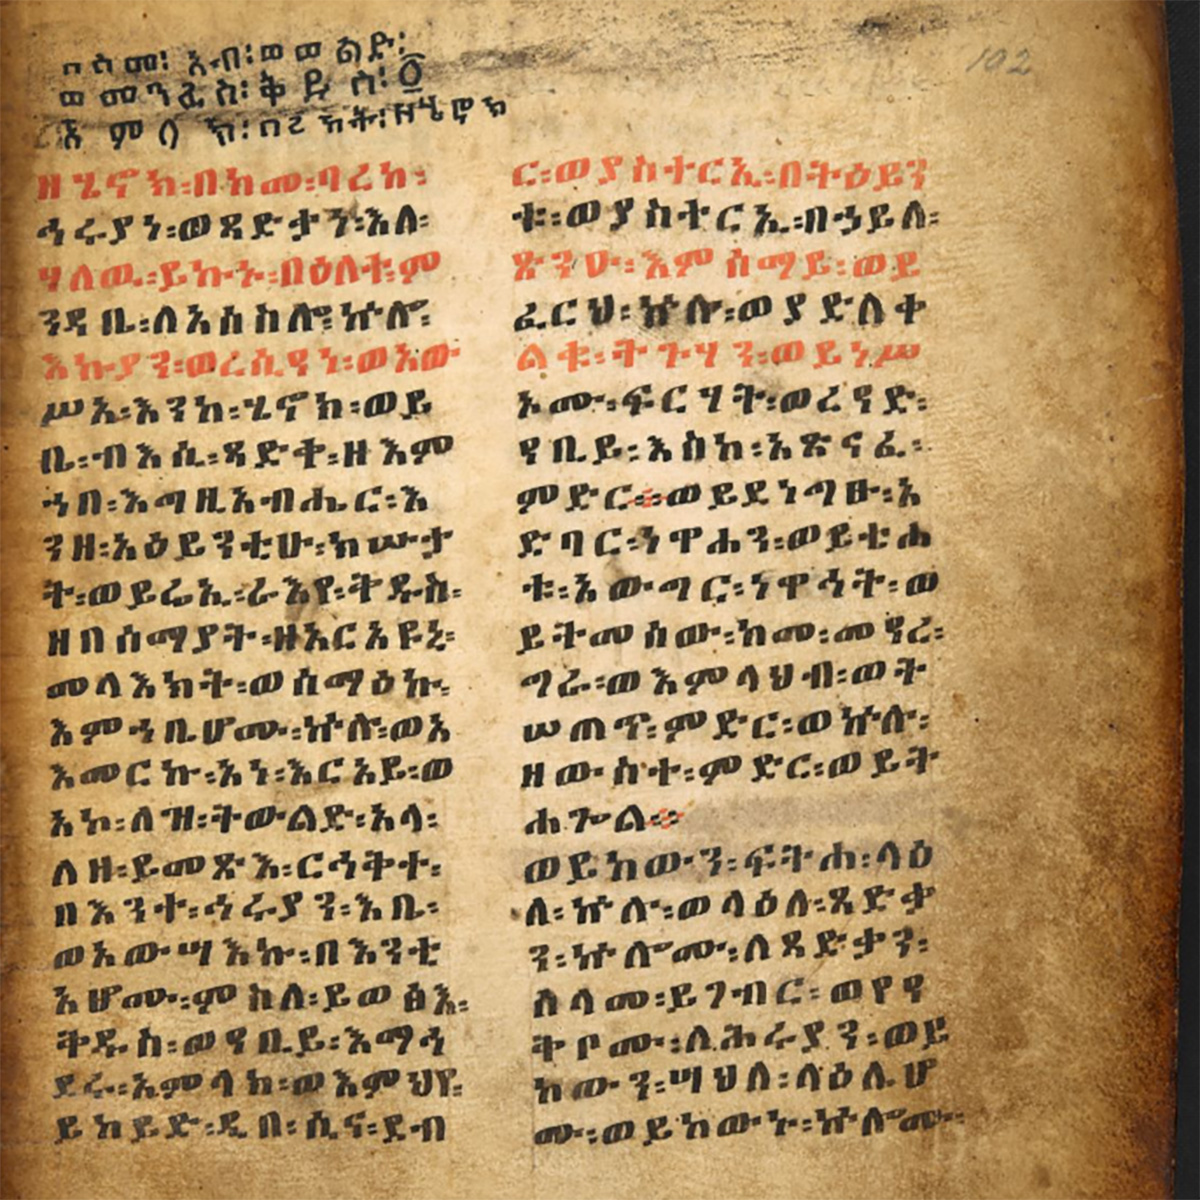 በስመ፡ አብ፡ወወ ልድ፡
ወመንፈስ፡ቅዱስ፡፩
አምላክ፡
102
ዘሄኖክ፡በከመ፡ባረከ፡
ኅሩያነ፡ወጻድታን፡እለ፡
ሃለዉ፡ይኩኑ፡በዕለተ፡ም
ንዳቤ፡ለአስስሎ፡ኵሎ፡
እኩያን፡ወረሲዓነ፡ወአው
ሥአ፡እንከ፡ሄኖክ፡ወይ
ቤ፡ብእሲ፡ጻድቀ፡ዘእም
ኀበ፡እግዚአብሔር፡እ
ንዘ፡አዕይንቲሁ፡ክሡታ
ት፡ወይሬኢ፡ራእየ፡ቅዱስ፡
ዘበሰማያት፡ዘአርአዩኒ፡
መላእክት፡ወሰማዕኩ፡
እምኀቤሆሙ፡ኵሉ፡ወአ
እመርኩ፡አነ፡እርአይ፡ወ
አኮ፡ለዝ፡ትውልድ፡አላ፡
ለዘ፡ይመጽእ፡ርኁቅተ፡
በእንተ፡ኅሩያን፡እቤ፡
ወአውሣእኩ፡በእንቲ
አሆሙ፡ምስለ፡ይወፅእ፡
ቅዱስ፡ወዓቢይ፡እማኅ
ደሩ፡አምላክ፡ወእምህየ፡
ይከይድ፡ዲበ፡ሲና፡ደብ
ር፡ወያስተርኢ፡በትዕይን
ቱ፡ወያስተርኢ፡በኃይለ፡
ጽንሁ፡እምሰማይ፡ወይ
ፈርህ፡ኵሉ፡ወያድለቀ
ልቁ፡ትጉሃን፡ወይነሥ
ኦሙ፡ፍርሃት፡ወረዓድ፡
ዓቢይ፡እስከ፡አጽናፈ፡
ምድር፡፡ወይደነግፁ፡አ
ድባር፡ነዋሐን፡ወይቲሐ
ቱ፡አውግር፡ነዋኅት፡ወ
ይትመሰው፡ከመ፡መዓረ፡
ግራ፡ወእምላህብ፡ወት
ሠጠጥ፡ምድር፡ወኵሉ፡
ዘውስተ፡ምድር፡ወይት
ሐጐል፡፡
ወይከውን፡ፍትሐ፡ላዕ
ለ፡ኵሉ፡ወላዕለ፡ጻድቃ
ን፡ኵሎሙ፡ለጻድቃን፡
ሰላመ፡ይገብር፡ወየዓ
ቅቦሙ፡ለኅሩያን፡ወይ
ከውን፡ሣህለ፡ላዕሌሆ
ሙ፡ወይከውኑ፡ኵሎሙ፡